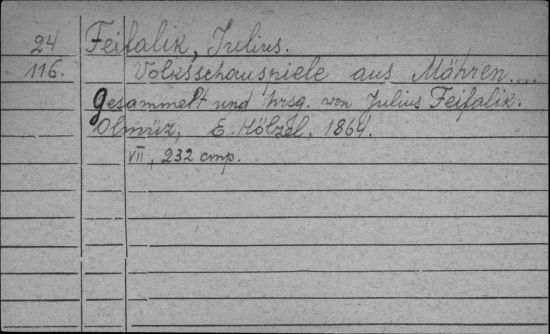 24 Feifalik, Julius.
116. Volksschauspiele aus Mähren....
Gesammelt und hrsg. von Julius Feifalik.
Olmüz, E. Hölzel, 1864.
VII, 232 cmp.